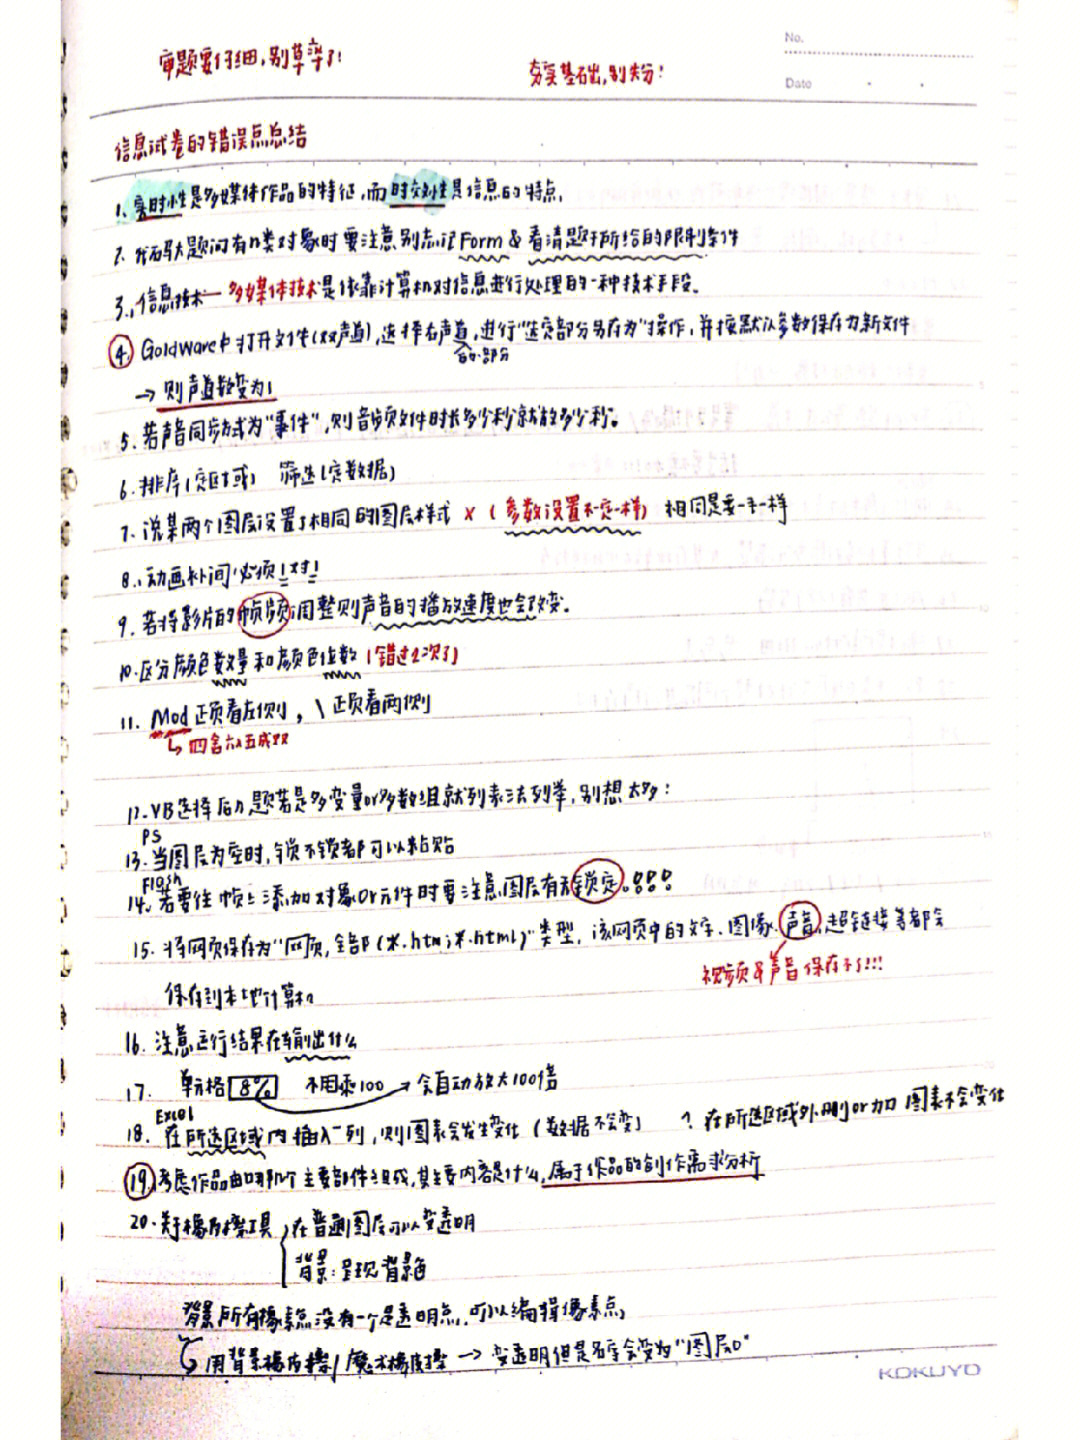 No.
审题要仔细,别草率了!
夯实基础,别失分!
Date
信息试卷的错误点总结
1、实时性是多媒体作品的特征,而时效性是信息的特点,
2. 代码大题问有n类对象时要注意别忘记Form & 看清题干所给的限制条件
3.信息技术— 多媒体技术是依靠计算机对信息进行处理的一种技术手段。
4. Goldwave中打开文件(双声道),选择右声道,进行"选定部分另存为"操作,并按默认参数保存为新文件
的部分
→ 则声道数变为1
5. 若声音同步方式为"事件",则音频文件时长多少秒就放多少秒。
6. 排序(定区域) 筛选(定数据)
7. 说某两个图层设置了相同的图层样式 × (参数设置不一定一样) 相同是要一手一样
8. 动画补间必须1对1
9. 若将影片的帧频调整则声音的播放速度也会改变。
10.区分颜色数量和颜色位数 (错过2次了)
11. Mod 正负看左侧,\ 正负看两侧
↳ 四舍六入五成双
12.VB选择后的题若是多变量or多数组就列表法列举,别想太多:
PS
13.当图层为空时,锁不锁都可以粘贴
Flash
14.若要往帧上添加对象or元件时要注意图层有无锁定。!!!
15. 将网页保存为"网页,全部(*.htm;*.html)"类型,该网页中的文字、图像、声音、超链接等都会
视频&声音保存不了!!!
保存到本地计算机
16. 注意运行结果在输出什么
17. 单元格 8% 不用乘100 → 会自动放大100倍
Excel
18. 在所选区域内插入一列,则图表会发生变化 (数据不会变) ? 在所选区域外删or加 图表不会变化
19.考虑作品由哪几个主要部件组成,其主要内容是什么,属于作品的创作需求分析
20.关于橡皮擦工具 在普通图层可以变透明
背景:呈现背景色
背景所有像素点没有一个是透明点,可以编辑像素点,
用背景橡皮擦/魔术橡皮擦 → 变透明但是名字会变为"图层0"
KOKUYO